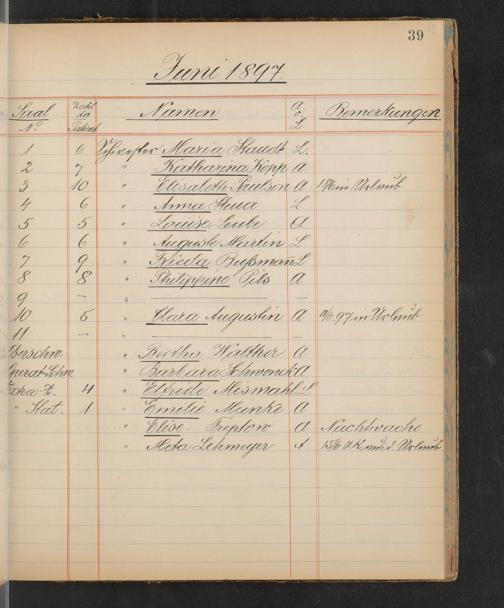 39
Juni 1897.
Saal No. Zahl der Patient Namen A o. L. Bemerkungen
1 6 Schwester Maria Staudt L.
2 7 " Katharina Kopp A
3 10 " Elisabeth Paulson A in Urlaub
4 6 " Anna Steuer L
5 5 " Louise Leube A
6 6 " Auguste Martin L
7 9 " Frieda Bußmann L
8 8 " Philippine Pils A
9 – "
10 6 " Clara Augustin A 97 in Urlaub
11 – "
" Bertha Walther A
" Barbara Schwenck A
4 " Elfriede Mismahl L
" Stat. 1 " Emilie Meinke A
" Elise Treptow A Nachtwache
" Meta Lehmeyer A 15/6 a. d. Urlaub